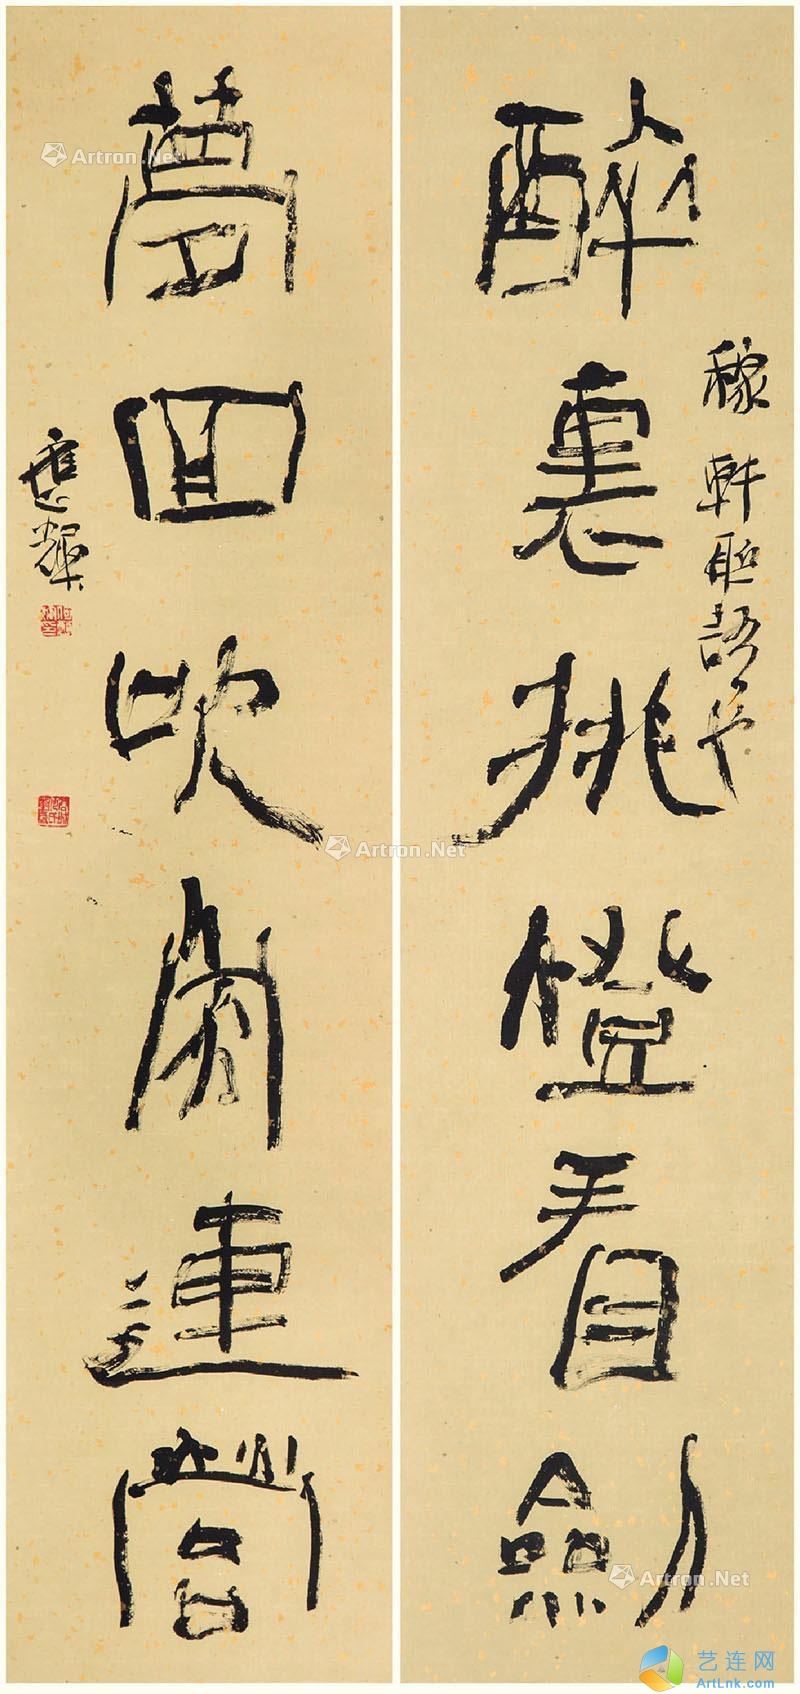 醉裏挑燈看劍
稼軒聯語也
夢回吹角連營
應輝
Artron.Net
Artron.Net
Artron.Net
艺连网
ArtLnk.com